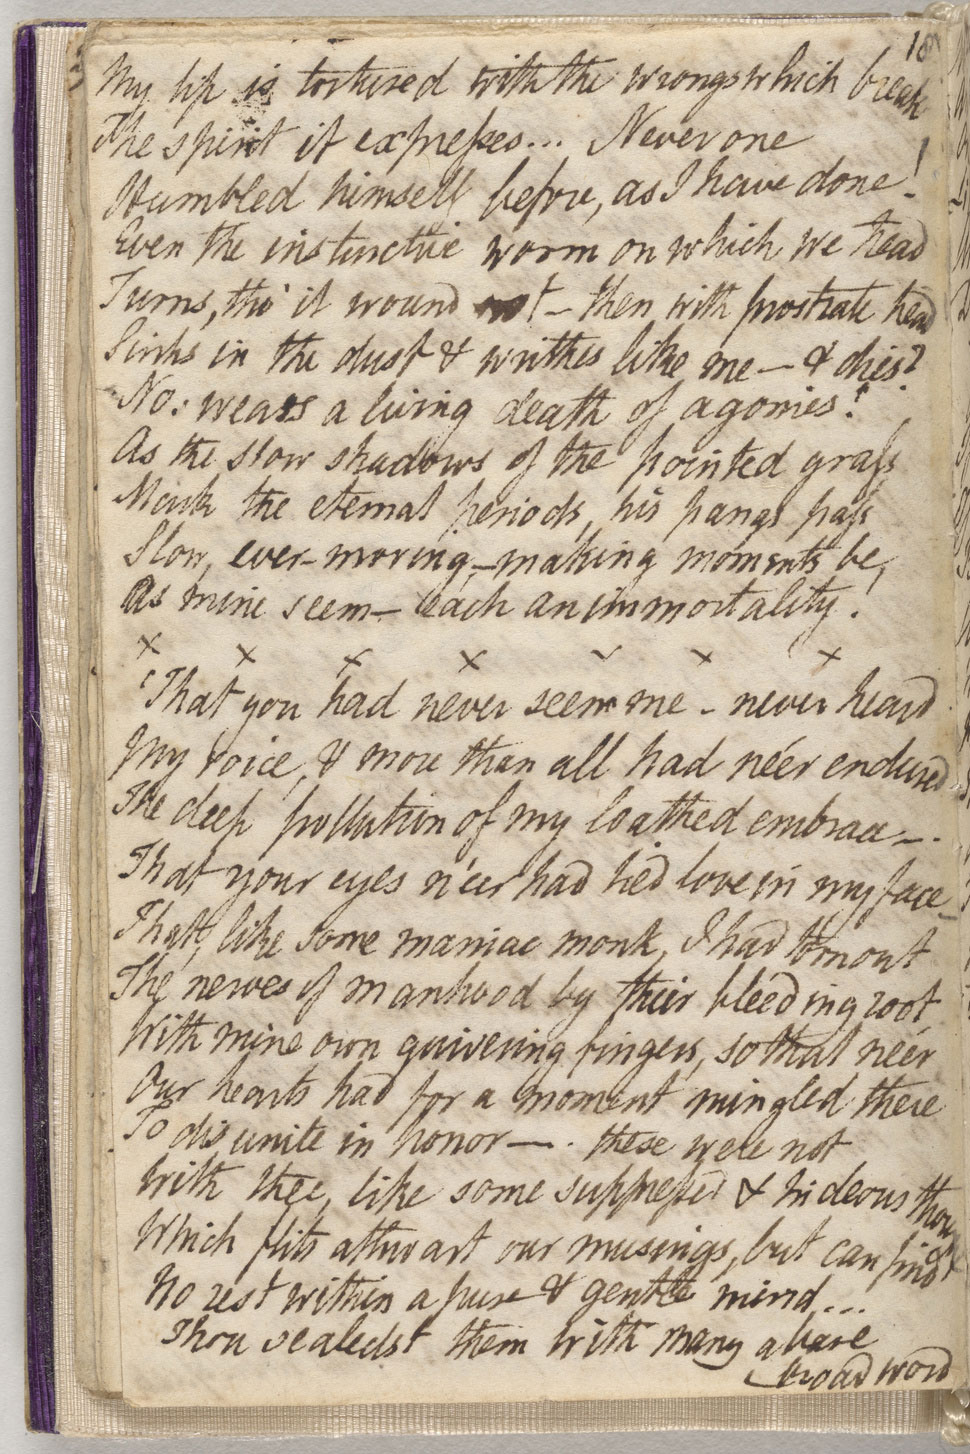 18
My lip is tortured with the wrongs which break
The spirit it expresses... Never one
Humbled himself before, as I have done!
Even the instinctive worm on which we tread
Turns, tho' it wound not - then with prostrate head
Sinks in the dust & writhes like me — & dies?
No: wears a living death of agonies!
As the slow shadows of the pointed grass
Mark the eternal periods, his pangs pass
Slow, ever-moving, - making moments be,
As mine seem - each an immortality!
x x x x ~ x x
'That you had never seen me - never heard
My voice, & more than all had ne'er endured
The deep pollution of my loathed embrace —.
That your eyes ne'er had lied love in my face -
That, like some maniac monk, I had torn out
The nerves of manhood by their bleeding root
With mine own quivering fingers, so that ne'er
Our hearts had for a moment mingled there
To disunite in honor —. these were not
With thee, like some suppressed & hideous thought
Which flits athwart our musings, but can find
No rest within a pure & gentle mind...
Thou sealedst them with many a bare
broad word